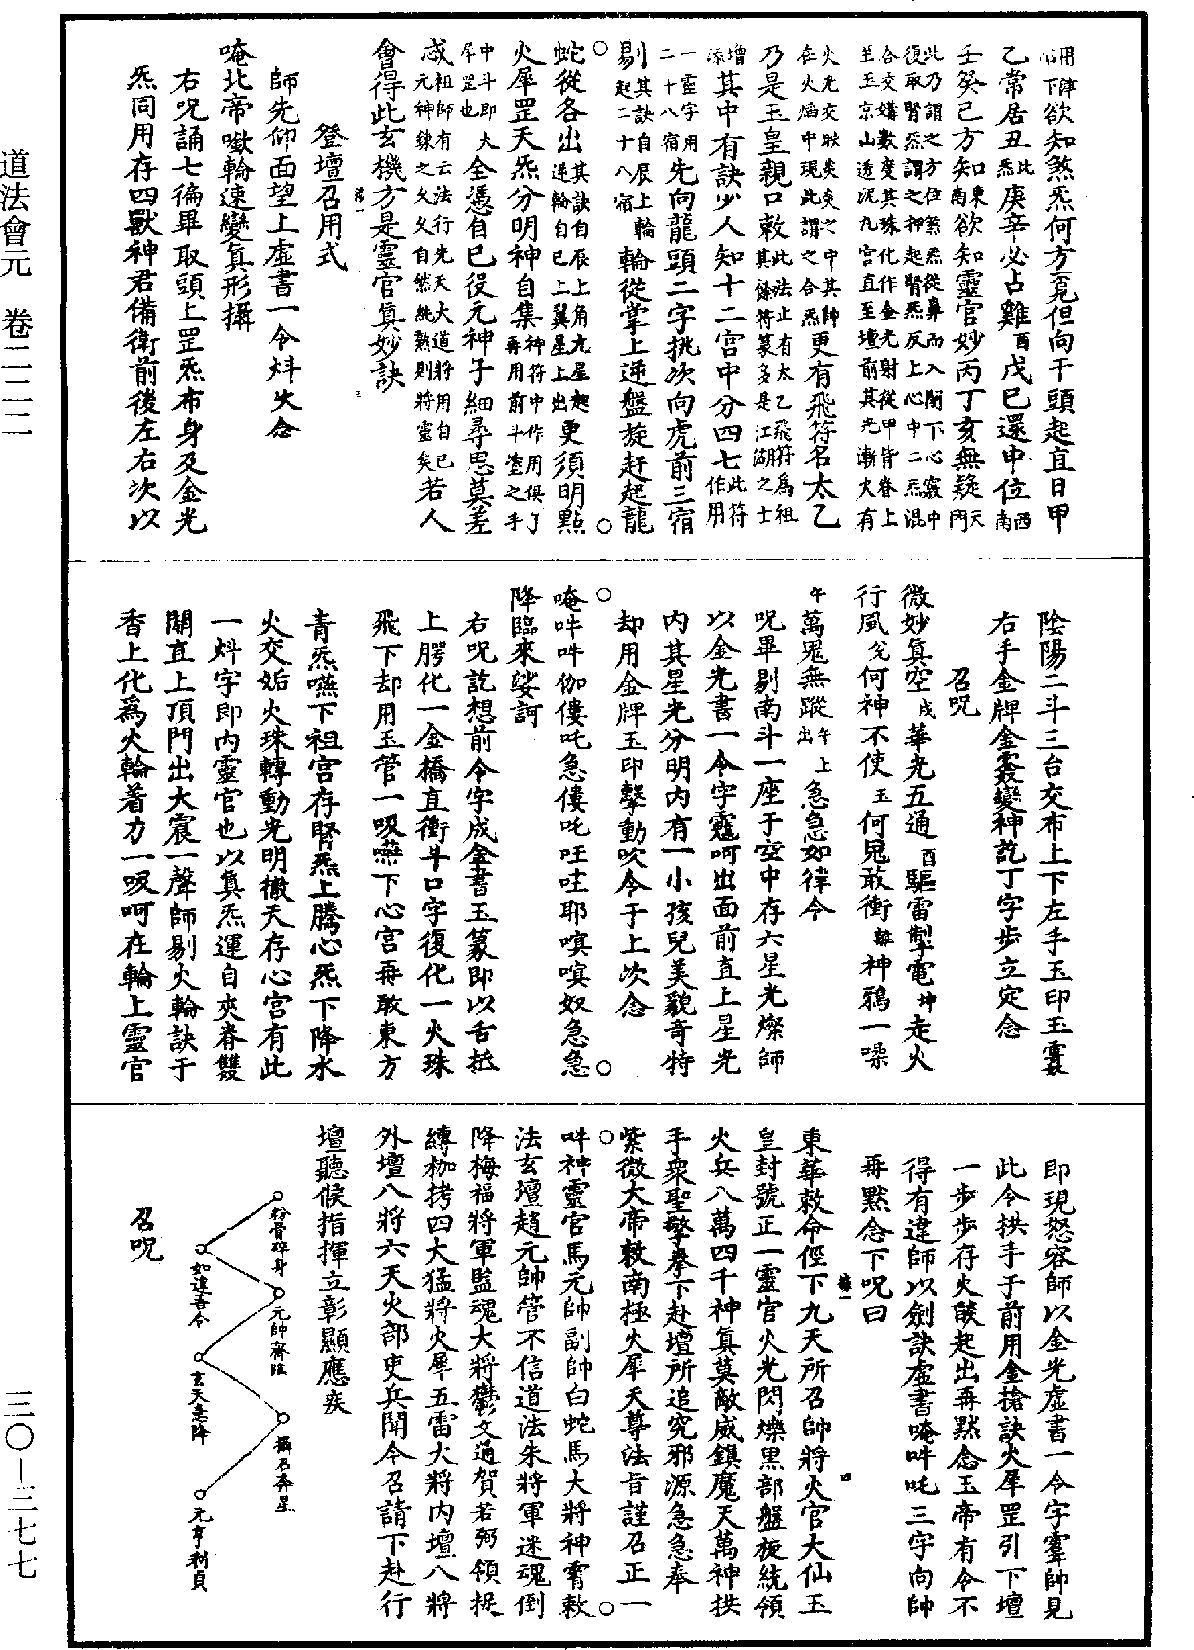 道法會元　卷二二二
三〇－三七七
用陣欲知煞炁何方覓但向干頭起直日甲
乙常居丑此炁庚辛必占雞酉戊巳還中位西南
壬癸巳方知東南欲知靈官妙丙丁亥無疑天門
此乃謂之方位煞炁從鼻而入閉下心竅中
復取腎炁謂之押起腎炁反上心中二炁混
合交媾數度其珠化作金光射從甲背脊上
至玉京山透泥九宮直至壇前其光漸大有
火光交映炎炎之中其帥
在火焰中現此謂之合炁更有飛符名太乙
乃是玉皇親口敕此法止有太乙飛符為祖其餘符篆多是江湖之士
增添其中有訣少人知十二宮中分四七此符作用
一靈字用二十八宿先向龍頭二字挑次向虎前三宿
剔其訣自辰上輪起二十八宿輪從掌上逆盤旋赶起龍
蛇從各出其訣自辰上角亢星起逆輪自巳上翼星上出更須明點
火犀罡天炁分明神自集神符中作用俱了再用前斗罡之手
中斗即大犀罡也全憑自巳役元神子細尋思莫差
忒祖師有云法行先天大道將用自己元神鍊之久久自然純熟則將靈矣若人
會得此玄機方是靈官真妙訣
登壇召用式
師先仰面望上虛書一令炓火念
唵北帝㘈輪速變真形攝
右呪誦七徧畢取頭上罡炁布身及金光
炁同用存四獸神君備衛前後左右次以
陰陽二斗三台交布上下左手玉印玉靈
右手金牌金靈變神訖丁字步立定念
召呪
微妙真空戌華光五通酉驅雷掣電坤走火
行風兌何神不使玉何鬼敢衝離神鴉一噪
午萬鬼無蹤出午上急急如律令
呪畢剔南斗一座于空中存六星光燦師
以金光書一令字靈呵出面前直上星光
內其星光分明內有一小孩兒美貌奇特
却用金牌玉印擊動吹令于上次念
唵吽吽伽僂吒急僂吒吐耶嗔嗔奴急急
降臨來娑訶
右呪訖想前令字成金書玉篆即以舌抵
上腭化一金橋直衝斗口字復化一火珠
飛下却用玉管一吸嚥下心宮再敢東方
青炁嚥下祖宮存腎炁上騰心炁下降水
火交姤火珠轉動光明徹天存心宮有此
一炓字即內靈官也以真炁運自夾脊雙
關直上頂門出大震一聲師剔火輪訣于
香上化為火輪着力一吸呵在輪上靈官
即現怒容師以金光虛書一令字靈帥見
此令拱手于前用金搶訣火犀罡引下壇
一步步存火燄起出再默念玉帝有令不
得有違師以劍訣虛書唵吽吒三字向帥
再默念下呪曰
東華敕命徑下九天所召帥將火官大仙玉
皇封號正一靈官火光閃爍黑部盤旋統領
火兵八萬四千神真莫敵威鎮魔天萬神拱
手眾聖擎拳下赴壇所追究邪源急急奉
紫微大帝敕南極火犀天尊法旨謹召正一
吽神靈官馬元帥副帥白蛇馬大將神霄敕
法玄壇趙元帥管不信道法朱將軍迷魂倒
降梅福將軍監魂大將鬱文通賀若弼領捉
縛枷拷四大猛將火犀五雷大將內壇八將
外壇八將六天火部吏兵聞令召請下赴行
壇聽候指揮立彰顯應疾
粉骨碎身
如違吾令
元帥齊臨
玄天急降
攝石奔星
元亨利貞
召呪